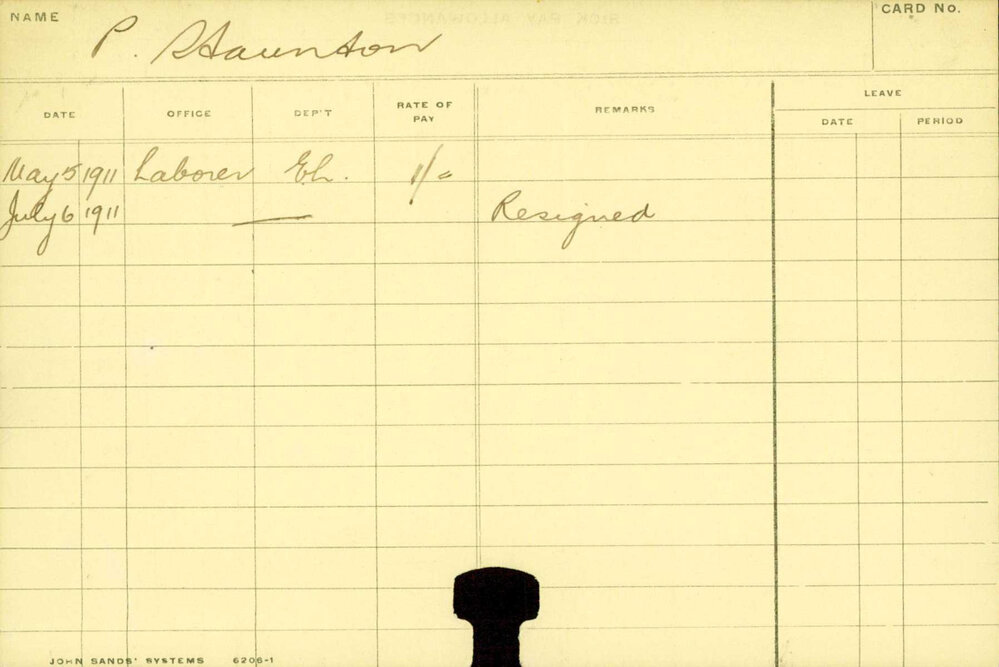 NAME P. Staunton CARD No.
DATE OFFICE DEP'T RATE OF PAY REMARKS LEAVE
DATE PERIOD
May 5 1911 Laborer El. 1/-
July 6 1911 — Resigned
JOHN SANDS' SYSTEMS 6206-1